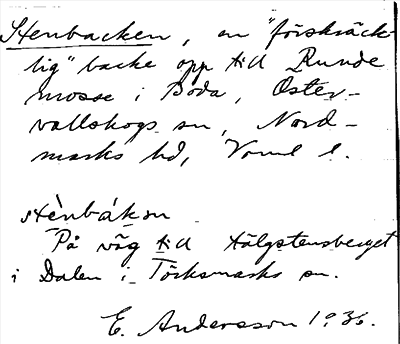 Stenbacken, en "förskräck-
lig" backe opp till Runde
mosse i Boda, Öster-
vallskogs sn, Nord-
marks hd, Värml l.
stènbákən
På väg till Hälgstensberget
i Dalen i Töcksmarks sn.
E. Andersson 1936.